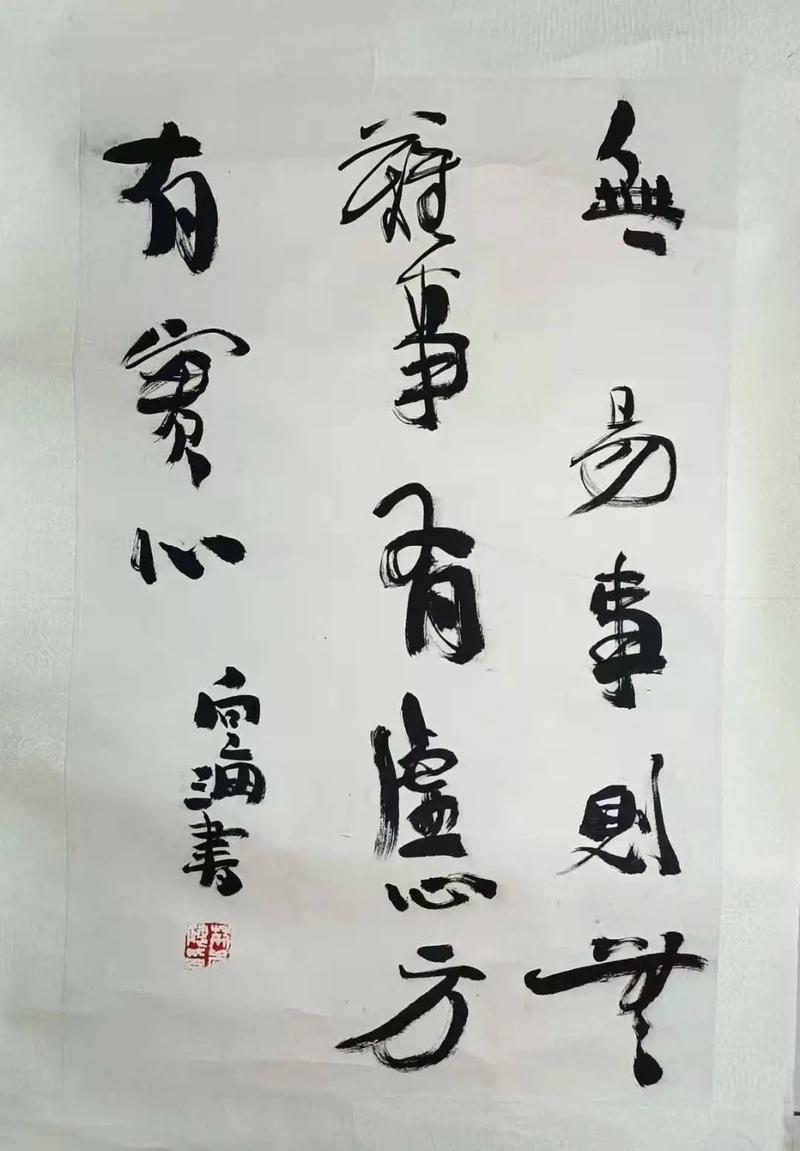 無易事則無
難事有虛心方
有實心
向海書